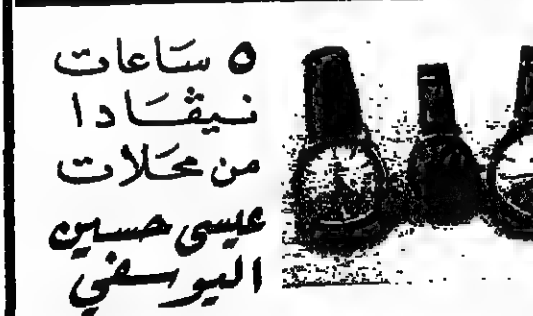 ٥ سَاعات
نـيڤـَادا
من محَلات
عيسى حسين
اليوسفي